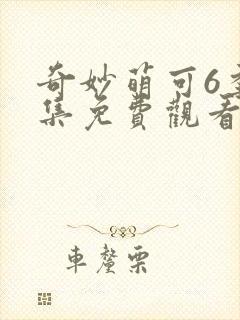 奇妙萌可6
集免費觀看
車釐栗